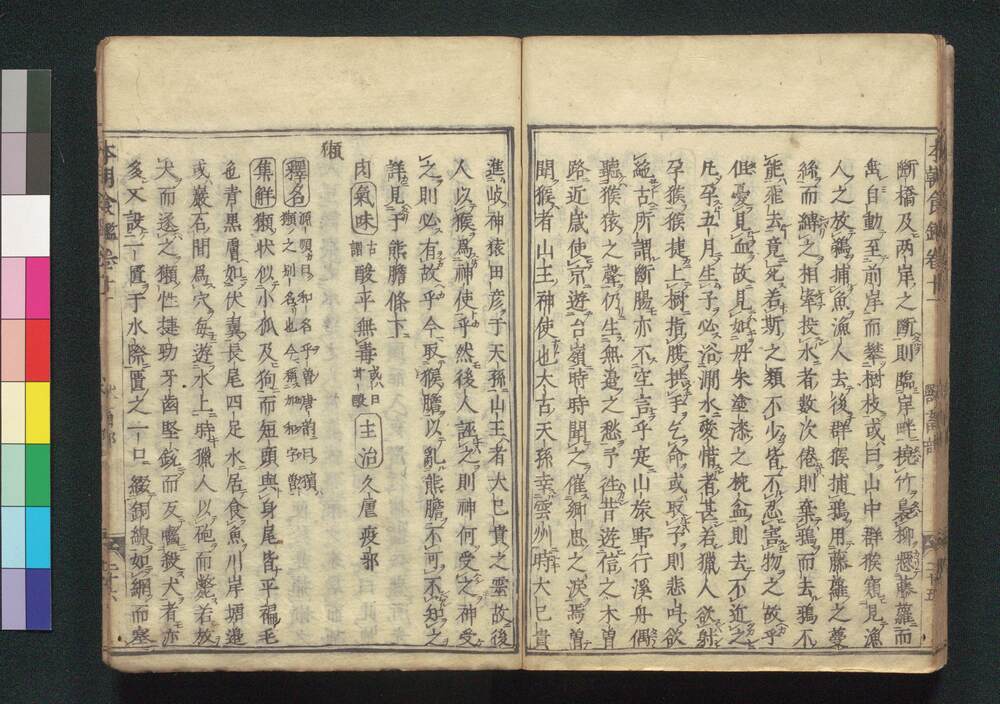 斷橋及両岸之斷則臨岸畔橈竹梟柳懸藤蘿而
禽自動至前岸而攀樹枝或曰山中群猴窺見漁
人之放鵜捕魚漁人去後群猴捕鴉用藤蘿之蔓
絲而縛之相牽投水者數次倦則棄鴉而去鴉不
能飛去竟死若斯之類不少皆不忍害物之故乎
但憂見血故見如丹朱塗漆之椀盆則去不近之
凡孕五月生子必浴澗水愛情者甚若獵人欲射
孕猴猴捷上樹指腹拱手乞命或取子則悲叫欲
絶古所謂斷腸亦不空言乎寔山旅野行溪舟偶
聽猴猿之聲仍生無邊之愁予徃昔遊信之木曽
路近歳使京遊台嶺時時聞之催鄉思之淚焉曽
聞猴者山王神使也太古天孫幸雲州時大已貴
本朝食鑑卷十一
獸畜部
二十五
進岐神猿田彦于天孫山王者大已貴之靈故後
人以猴爲神使乎然後人誣之則神何受之神受
之則必有故乎今取猴膽以亂熊膽不可不知之
詳見于熊膽條下
肉氣味
古謂
酸平無毒
或曰甘酸
主治久瘧疫邪
獺
釋名
集解獺狀似小狐及狗而短頭與身尾皆平褊毛
色青黑膚如伏翼長尾四足水居食魚川岸塘邉
或巖石間爲穴每遊水上時獵人以砲而斃若放
犬而逐之獺性捷勁牙齒堅鋭而反囓殺犬者亦
多又設一匱于水際匱之一口綴銅線如網而塞
本朝食鑑卷十一
二十六